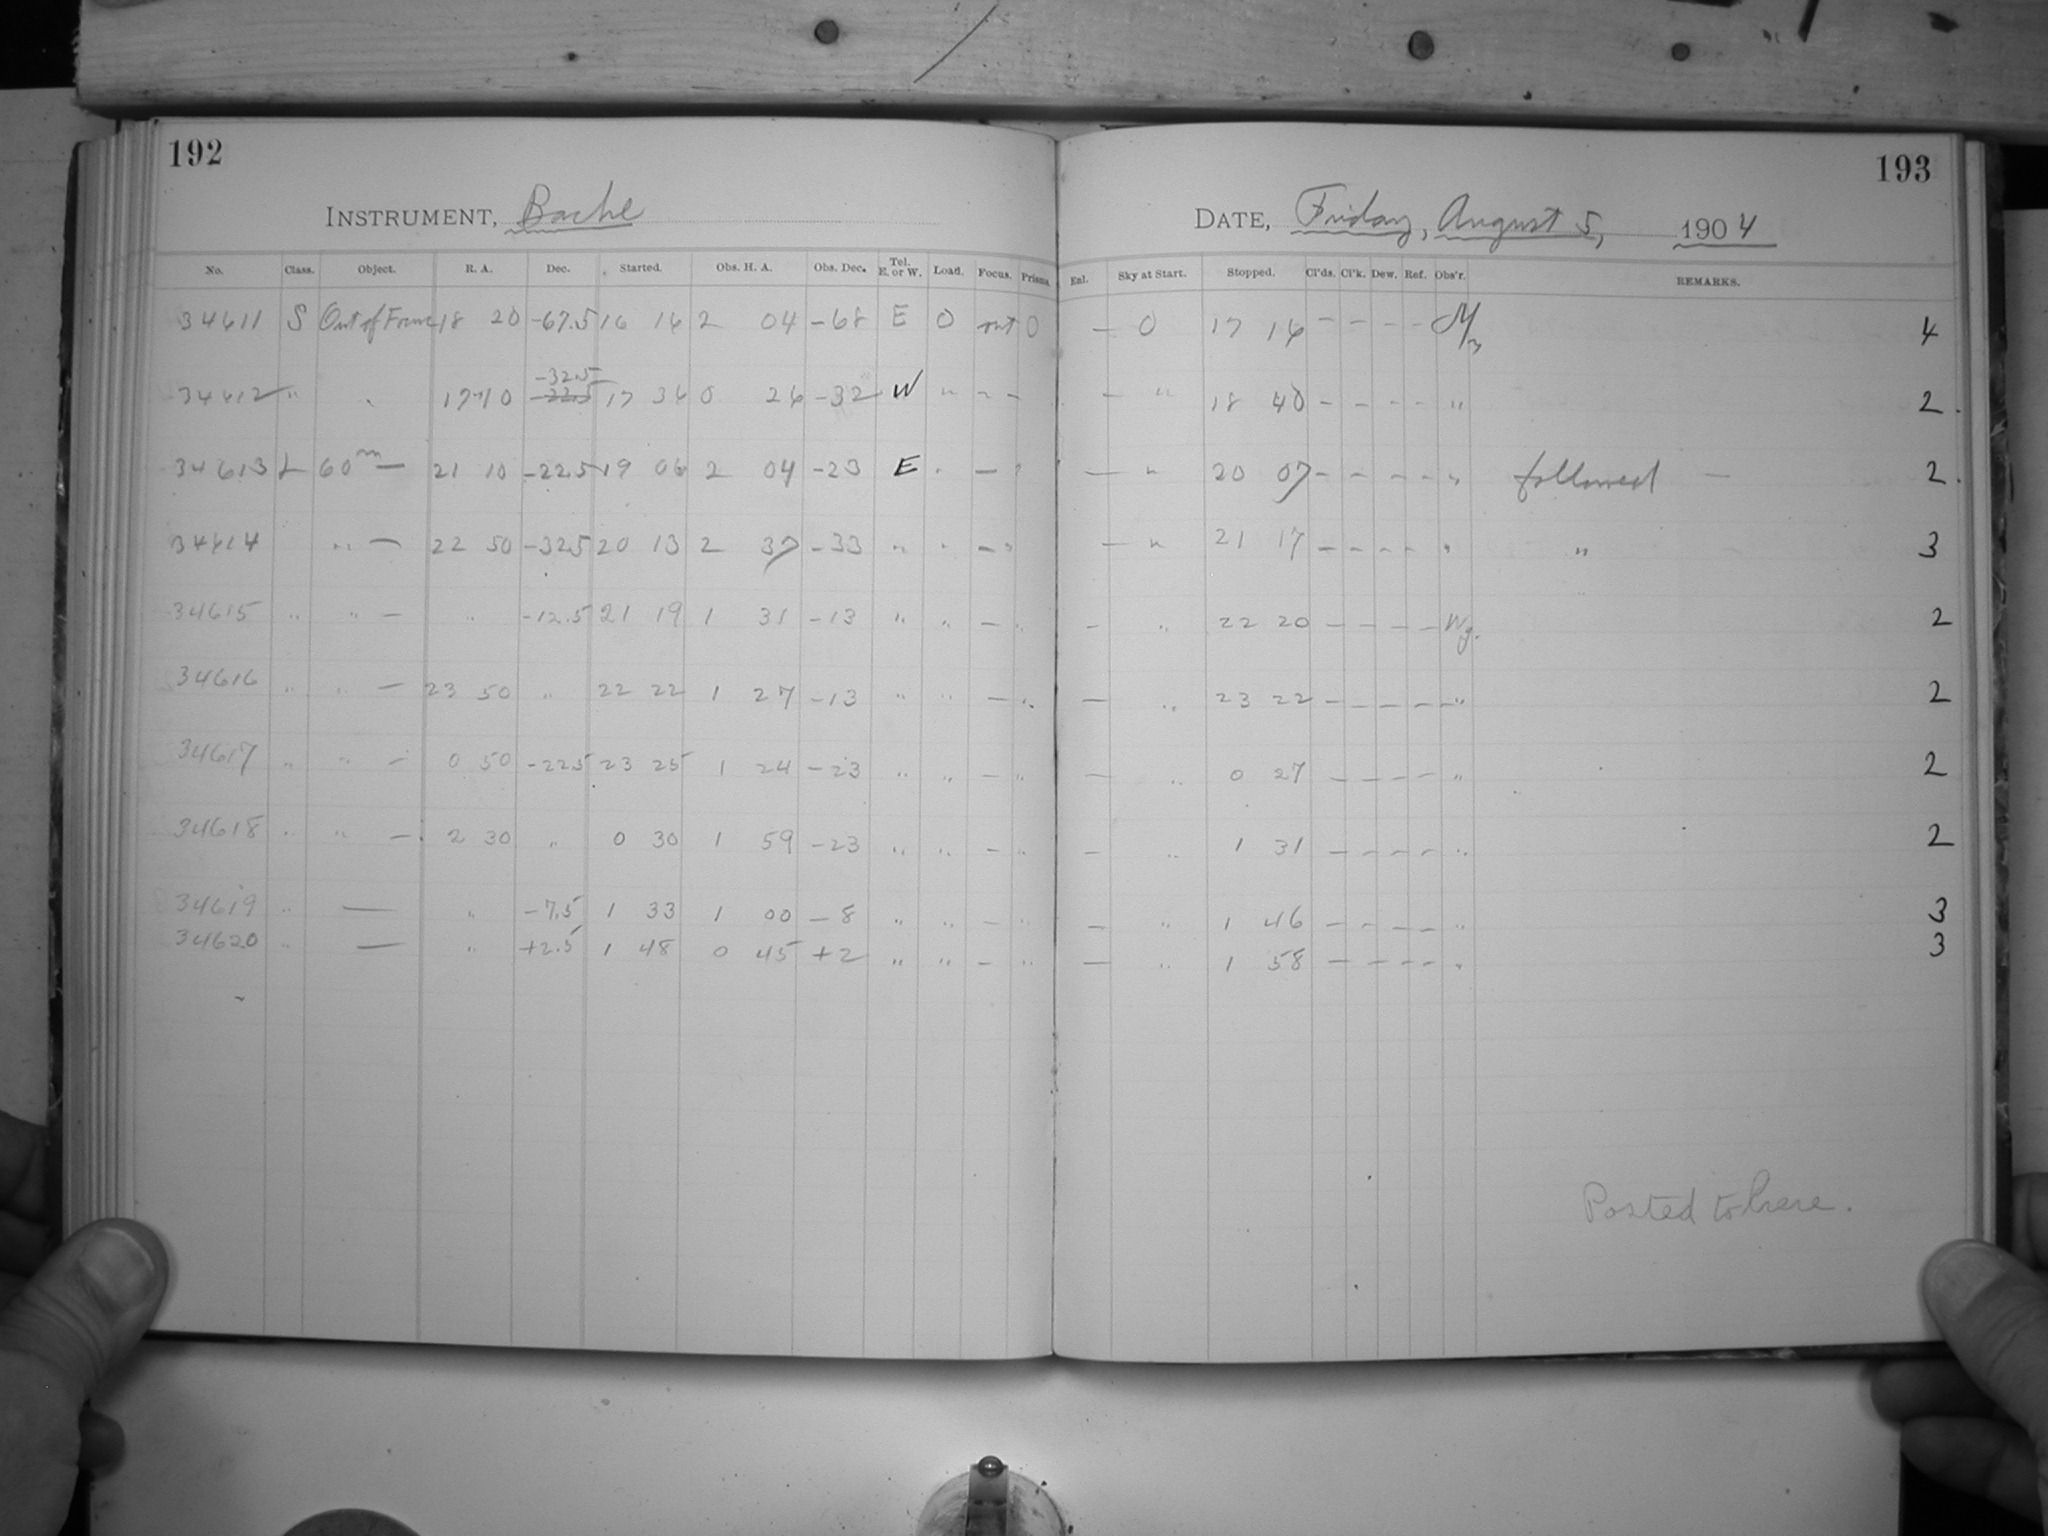 192
193
INSTRUMENT, Bache
DATE, Friday, August 5, 1904
No. Class. Object. R. A. Dec. Started. Obs. H. A. Obs. Dec. Tel. E. or W. Load. Focus. Prisms. Enl. Sky at Start. Stopped. Cl'ds. Cl'k. Dew. Ref. Obs'r. REMARKS.
34611 S Out of Focus 18 20 -67.5 16 16 2 04 -68 E 0 out 0 — 0 17 16 - - - - 4
-32.5
34612 " " 17 10 -22.5 17 36 0 26 -32 W " - - — " 18 40 - - - - " 2.
34613 L 60m — 21 10 -22.5 19 06 2 04 -23 E " — " — " 20 07 - - - - " followed — 2.
34614 " — 22 50 -32.5 20 13 2 37 -33 " " — " — " 21 17 - - - - " " 3
34615 " " — " -12.5 21 19 1 31 -13 " " — " — " 22 20 - - - - Wg. 2
34616 " " — 23 50 " 22 22 1 27 -13 " " — " — " 23 22 - - - - " 2
34617 " " — 0 50 -22.5 23 25 1 24 -23 " " — " — " 0 27 - - - - " 2
34618 " " — 2 30 " 0 30 1 59 -23 " " — " — " 1 31 - - - - " 2
34619 " — " -7.5 1 33 1 00 -8 " " — " — " 1 46 - - - - " 3
34620 " — " +2.5 1 48 0 45 +2 " " — " — " 1 58 - - - - " 3
Posted to here.